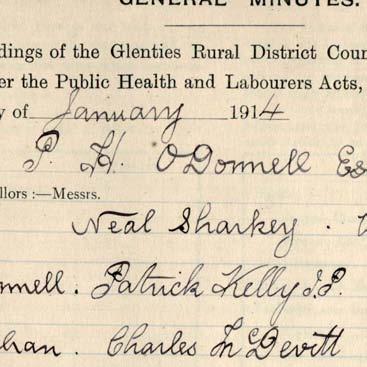 GENERAL MINUTES.
dings of the Glenties Rural District Coun
er the Public Health and Labourers Acts,
y of January 1914
P. H. O'Donnell Es
llors :—Messrs.
Neal Sharkey .
nnell . Patrick Kelly J.P.
han . Charles McDevitt